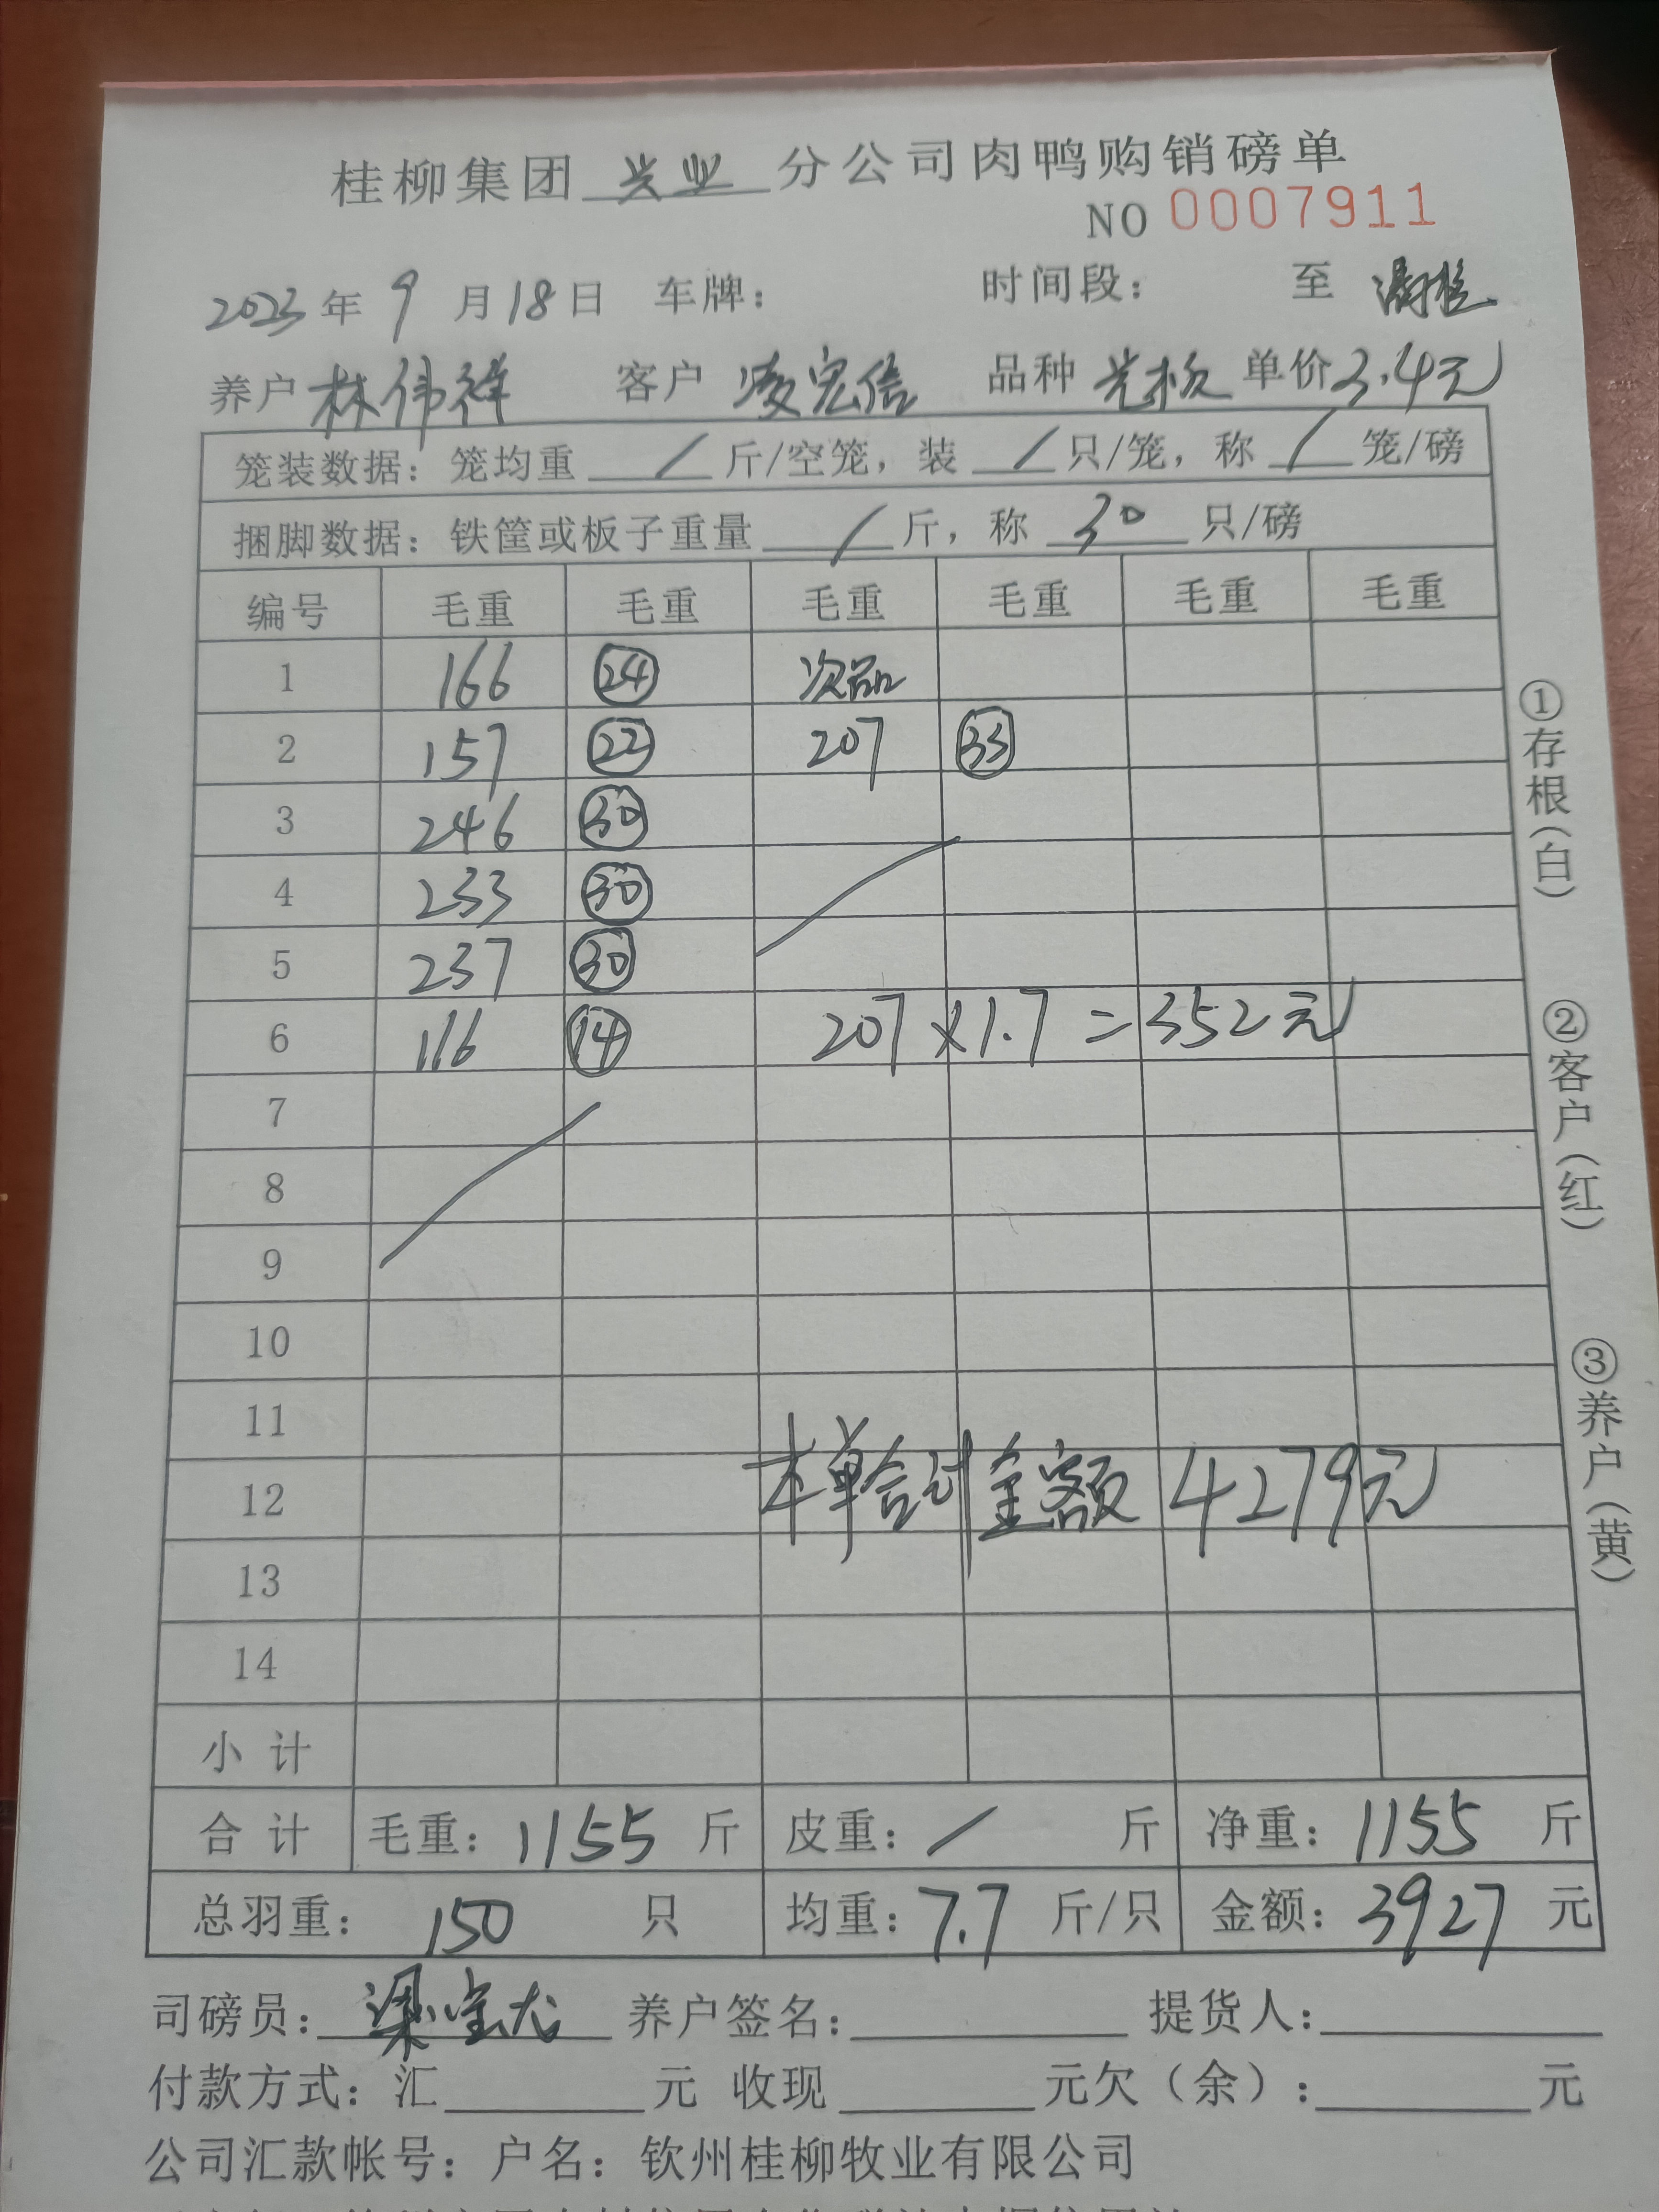 桂柳集团 兴业 分公司肉鸭购销磅单
NO 0007911
2023年 9 月18日 车牌: 时间段: 至 清栏
养户 林伟祥 客户 凌宏信 品种 光板 单价 3.4元
笼装数据: 笼均重 / 斤/空笼, 装 / 只/笼, 称 / 笼/磅
捆脚数据: 铁筐或板子重量 / 斤, 称 30 只/磅
编号 毛重 毛重 毛重 毛重 毛重 毛重
1 166 24 次品
2 157 22 207 33
3 246 30
4 233 30
5 237 30
6 116 14 207×1.7=352元
7
8
9
10
11
12 本单合计金额 4279元
13
14
小计
合计 毛重: 1155 斤 皮重: / 斤 净重: 1155 斤
总羽重: 150 只 均重: 7.7 斤/只 金额: 3927 元
司磅员: 梁宝龙 养户签名: 提货人:
付款方式: 汇 元 收现 元欠(余): 元
公司汇款帐号: 户名: 钦州桂柳牧业有限公司
①存根(白)
②客户(红)
③养户(黄)